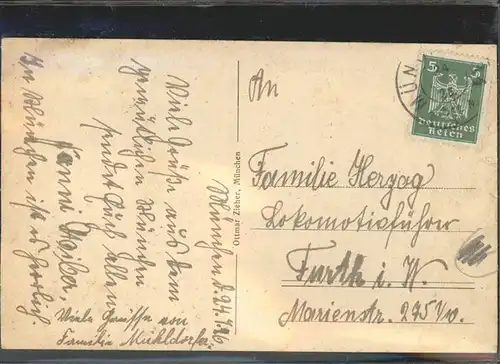 München d. 24.1.26
Viele Grüße aus dem
gemütlichen München
sendet Euch allen
Fanni
In München ist es herrlich.
Viele Grüsse von
Familie Mühldorfer
Ottmar Zieher, München
An
Familie Herzog
Lokomotivführer
Furth i. W.
Marienstr. 275 1/0.
5 5
Deutsches
Reich
MÜN